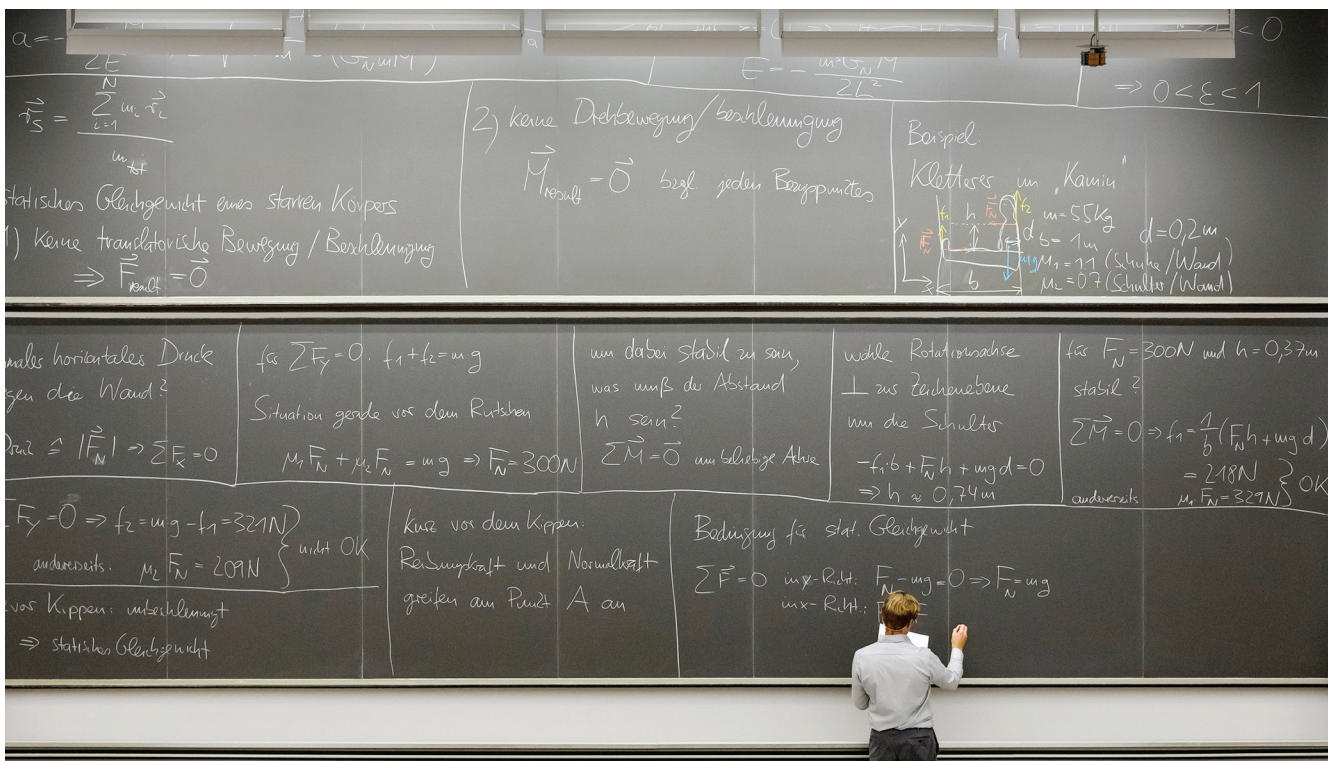 a=-
2E
a
(G_N mM)
E = - m²G_N M / 2L²
< 0
⇒ 0 < ε < 1
r⃗_S = Σ_{i=1}^{N} m_i r⃗_i / m_tot
statisches Gleichgewicht eines starren Körpers
1) keine translatorische Bewegung / Beschleunigung
⇒ F⃗_result = 0⃗
2) keine Drehbewegung / beschleunigung
M⃗_result = 0⃗ bzgl. jeden Bezugspunktes
Beispiel
Kletterer im „Kamin“
f₁ h F⃗_N f₂
F⃗_N d mg
y x b
m = 55 kg
b = 1 m d = 0,2 m
μ₁ = 1.1 (Schuhe/Wand)
μ₂ = 0.7 (Schulter/Wand)
males horizontales Druck
gen die Wand?
Druck ≙ |F⃗_N| ⇒ ΣF_x = 0
für ΣF_y = 0: f₁ + f₂ = mg
Situation gerade vor dem Rutschen
μ₁F_N + μ₂F_N = mg ⇒ F_N = 300N
um dabei stabil zu sein,
was muß der Abstand
h sein?
ΣM⃗ = 0⃗ um beliebige Achse
wähle Rotationsachse
⊥ zur Zeichenebene
um die Schulter
-f₁·b + F_N h + mgd = 0
⇒ h ≈ 0,74 m
für F_N = 300N und h = 0,37m
stabil?
ΣM⃗ = 0 ⇒ f₁ = 1/b (F_N h + mgd)
= 218N } OK
andererseits μ₁F_N = 329N
ΣF_y = 0⃗ ⇒ f₂ = mg - f₁ = 321N } nicht OK
andererseits: μ₂F_N = 209N
vor Kippen: unbeschleunigt
⇒ statisches Gleichgewicht
kurz vor dem Kippen:
Reibungskraft und Normalkraft
greifen am Punkt A an
Bedingung für stat. Gleichgewicht
ΣF⃗ = 0 in y-Richt: F_N - mg = 0 ⇒ F_N = mg
in x-Richt.: F